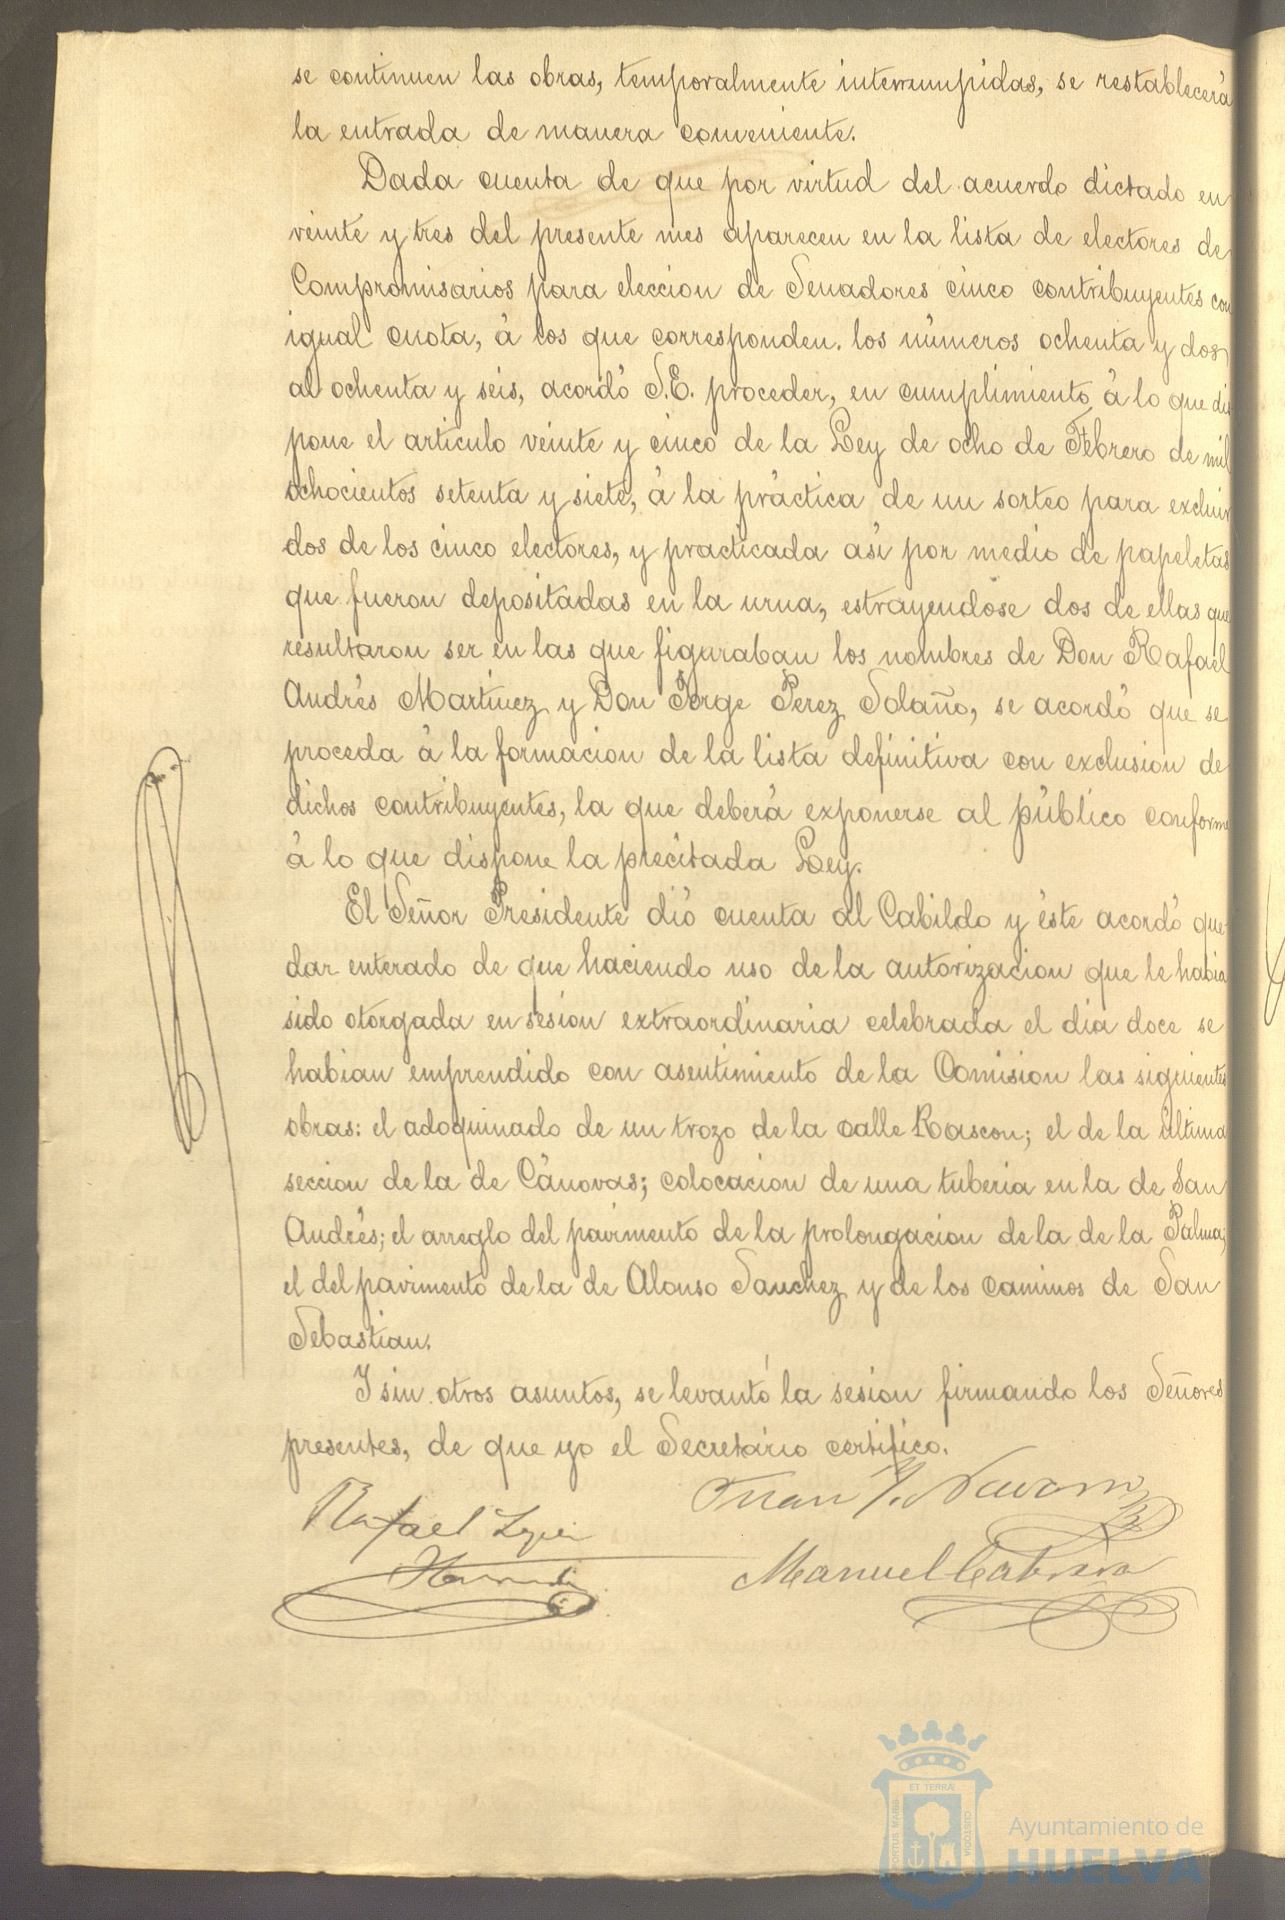 se continuen las obras, temporalmente interrumpidas, se restablecerá
la entrada de manera conveniente.
Dada cuenta de que por virtud del acuerdo dictado en
veinte y tres del presente mes aparecen en la lista de electores de
Compromisarios para eleccion de Senadores cinco contribuyentes con
igual cuota, á los que corresponden los números ochenta y dos
al ochenta y seis, acordó S.E. proceder, en cumplimiento á lo que dis
pone el articulo veinte y cinco de la Ley de ocho de Febrero de mil
ochocientos setenta y siete, á la práctica de un sorteo para excluir
dos de los cinco electores, y practicada así por medio de papeletas
que fueron depositadas en la urna, estrayendose dos de ellas que
resultaron ser en las que figuraban los nombres de Don Rafael
Andrés Martinez y Don Jorge Perez Solaño, se acordó que se
proceda á la formacion de la lista definitiva con exclusion de
dichos contribuyentes, la que deberá exponerse al público conforme
á lo que dispone la precitada Ley.
El Señor Presidente dió cuenta al Cabildo y éste acordó que-
dar enterado de que haciendo uso de la autorizacion que le habia
sido otorgada en sesion extraordinaria celebrada el dia doce se
habian emprendido con asentimiento de la Comision las siguientes
obras: el adoquinado de un trozo de la calle Rascon; el de la última
seccion de la de Cánovas; colocacion de una tuberia en la de San
Andrés; el arreglo del pavimento de la prolongacion de la de la Palma;
el del pavimento de la de Alonso Sanchez y de los caminos de San
Sebastian.
I sin otros asuntos, se levantó la sesion firmando los Señores
presentes, de que yo el Secretario certifico.
Juan J. Navarro
Rafael Lopez
Hernandez
Manuel Cabrera
ET TERRAE
PORTUS MARIS
CUSTODIA
Ayuntamiento de
HUELVA